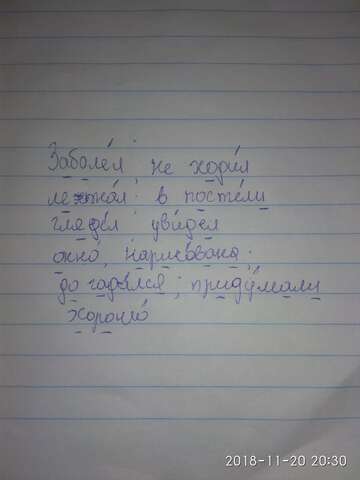 Заболе́л, не ходи́л
лежа́л в посте́ли
гляде́л уви́дел
окно́, нарисо́вана;
до гада́лся; приду́мали
хорошо́
2018-11-20 20:30